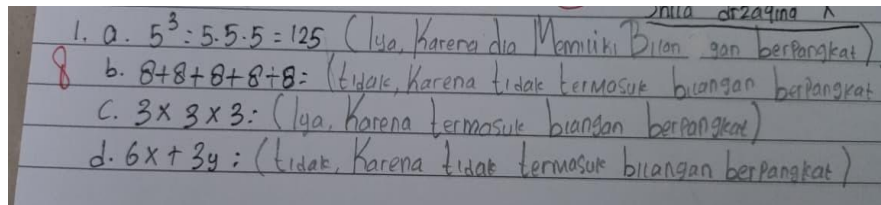 1. a. 5³ = 5.5.5 = 125 (Iya, Karena dia Memiliki Bilan gan berpangkat)
8 b. 8+8+8+8+8= (tidak, Karena tidak termasuk bilangan berpangkat
C. 3 x 3 x 3 : (Iya, Karena termasuk biangan berpangkat)
d. 6x + 3y : (tidak, Karena tidak termasuk bilangan berpangkat)